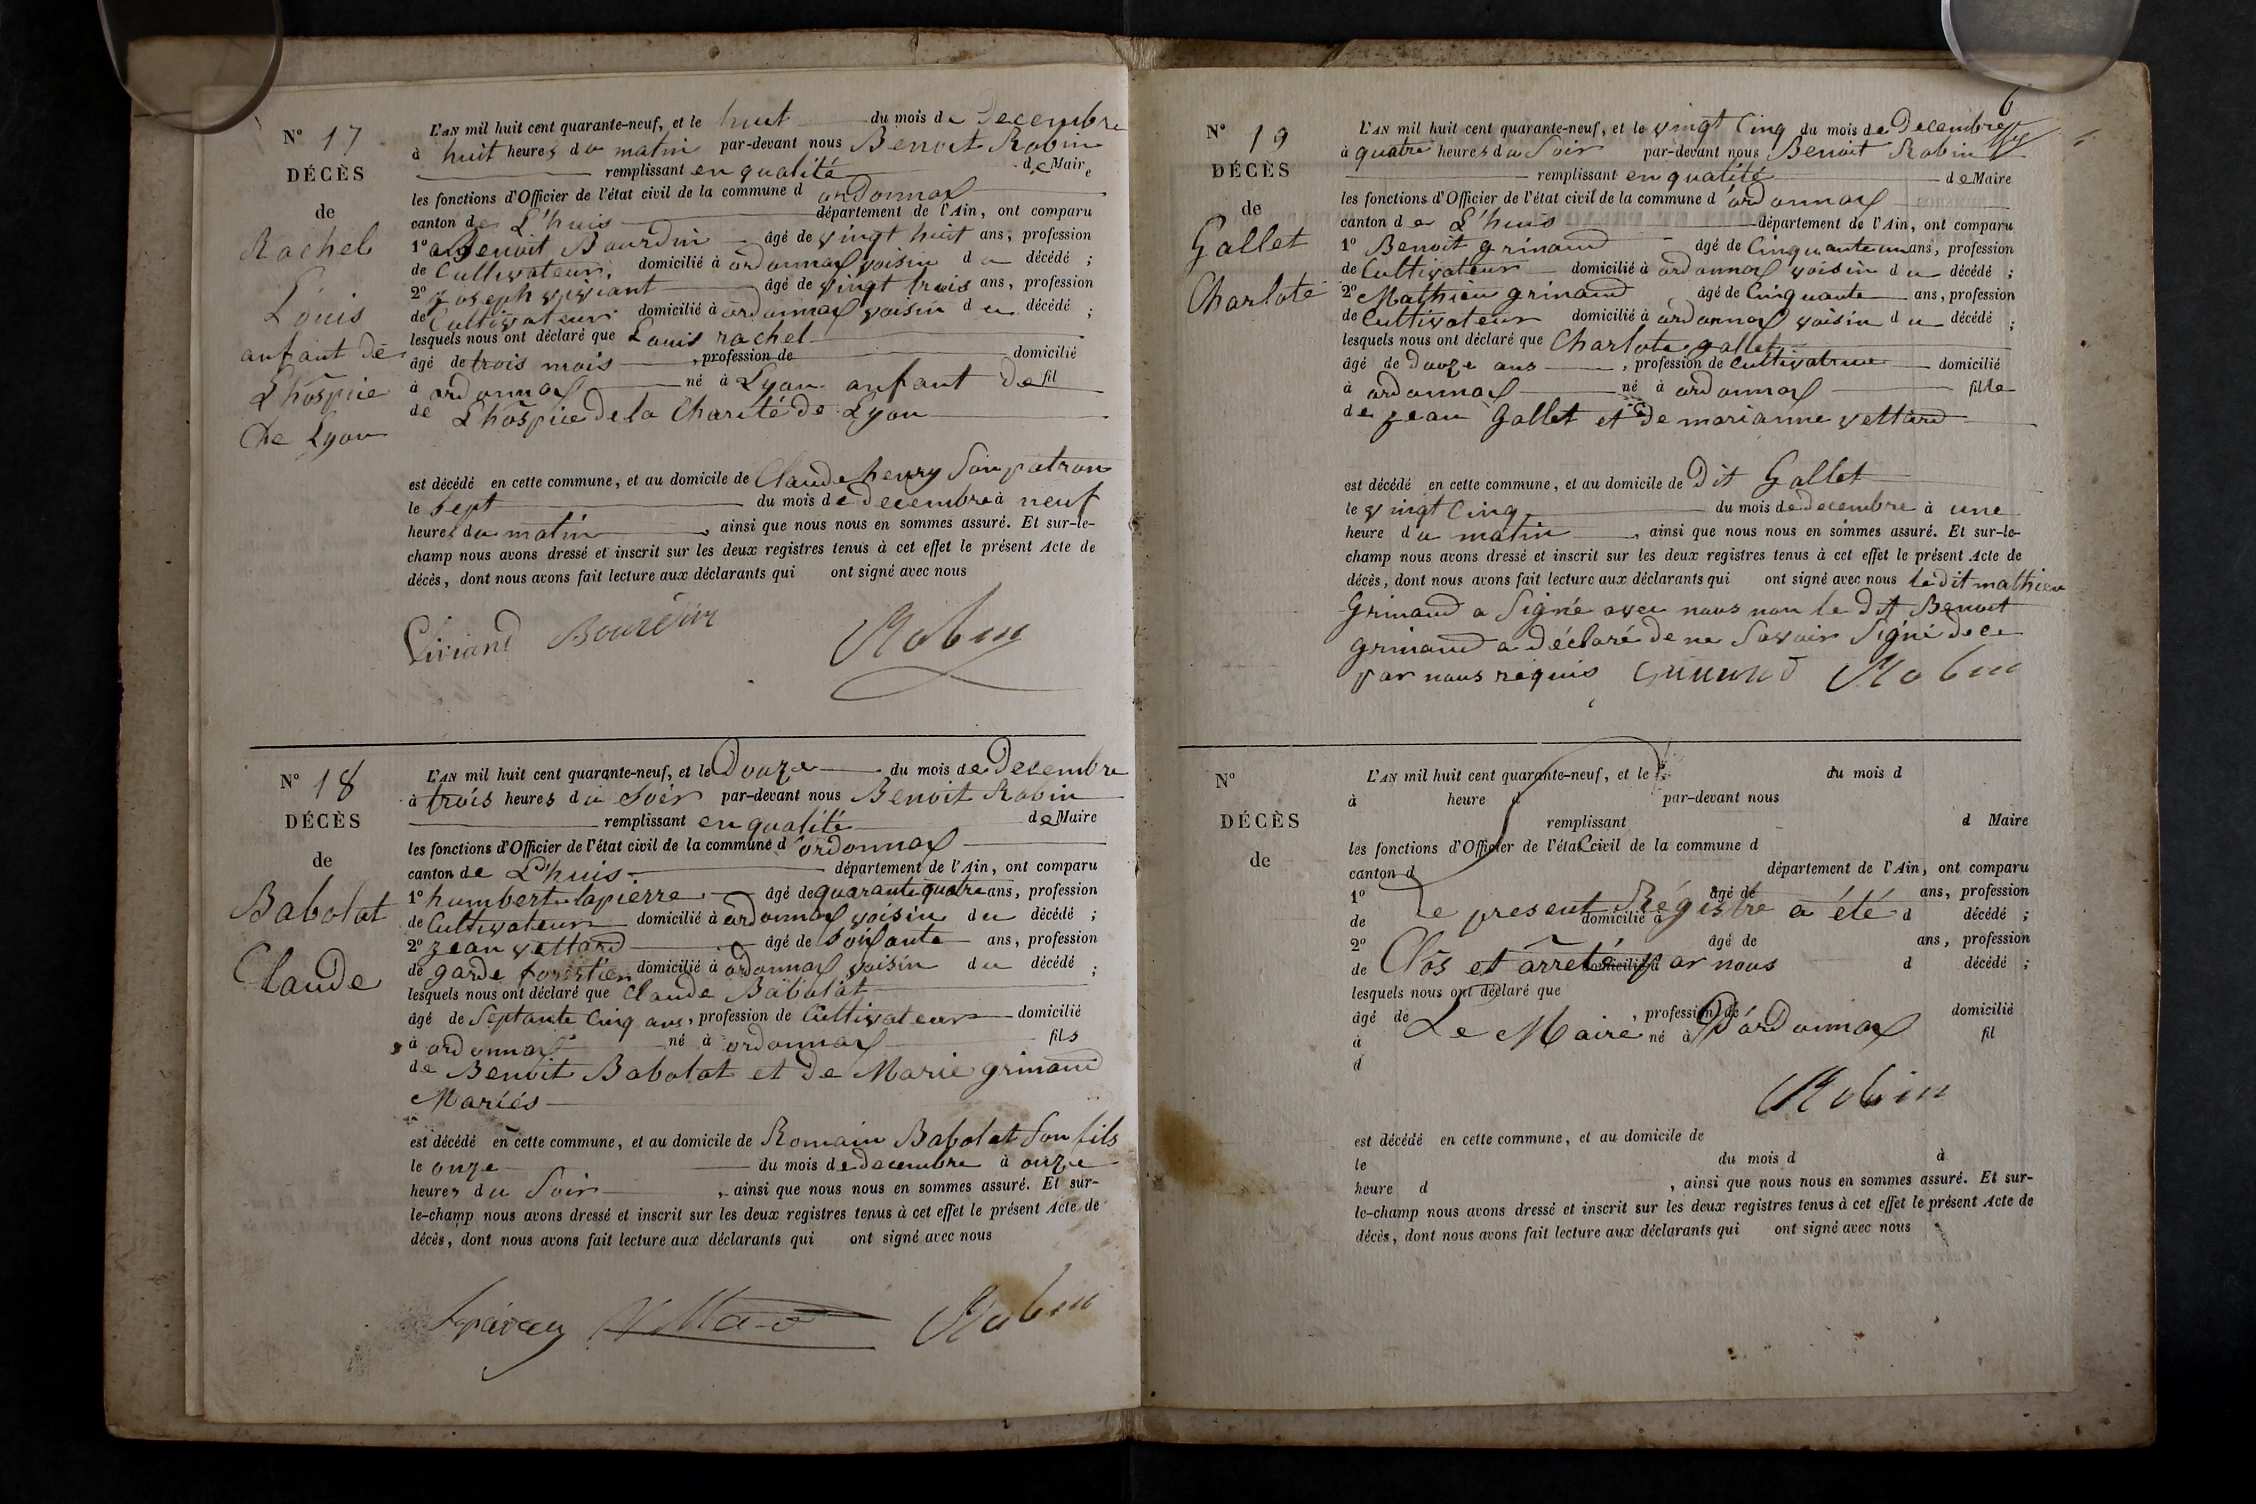 N° 17
DÉCÈS
de
Rachel
Louis
anfant de
L'hospice
De Lyon
L'AN mil huit cent quarante-neuf, et le huit du mois de Decembre
à huit heures du matin par-devant nous Benoit Robin
remplissant en qualité de Maire
les fonctions d'Officier de l'état civil de la commune d ordonnax
canton de L'huis département de l'Ain, ont comparu
1° Benoit Bourdin âgé de vingt huit ans, profession
de Cultivateur, domicilié à ordonnax voisin du décédé ;
2° Joseph viviant âgé de vingt trois ans, profession
de Cultivateur domicilié à ordonnax voisin du décédé ;
lesquels nous ont déclaré que Louis rachel
âgé de trois mois , profession de domicilié
à ordonnax né à Lyon anfant de fil
de L'hospice de la Charité de Lyon
est décédé en cette commune, et au domicile de Claude henry Son patron
le Sept du mois de decembre à neuf
heures du matin , ainsi que nous nous en sommes assuré. Et sur-le-
champ nous avons dressé et inscrit sur les deux registres tenus à cet effet le présent Acte de
décès, dont nous avons fait lecture aux déclarants qui ont signé avec nous
Viviand Bourdin Robin
N° 18
DÉCÈS
de
Babolat
Claude
L'AN mil huit cent quarante-neuf, et le Douze du mois de Decembre
à trois heures du Soir par-devant nous Benoit Robin
remplissant en qualité de Maire
les fonctions d'Officier de l'état civil de la commune d'ordonnax
canton de L'huis département de l'Ain, ont comparu
1° humbert lapierre âgé de quarante quatre ans, profession
de Cultivateur domicilié à ordonnax voisin du décédé ;
2° jean vettard âgé de Soixante ans, profession
de garde forestier domicilié à ordonnax voisin du décédé ;
lesquels nous ont déclaré que Claude Babolat
âgé de Septante Cinq ans, profession de Cultivateur domicilié
à ordonnax né à ordonnax fils
de Benoit Babolat et de Marie grinand
Mariés
est décédé en cette commune, et au domicile de Romain Babolat Son fils
le onze du mois de decembre à onze
heures du Soir , ainsi que nous nous en sommes assuré. Et sur-
le-champ nous avons dressé et inscrit sur les deux registres tenus à cet effet le présent Acte de
décès, dont nous avons fait lecture aux déclarants qui ont signé avec nous
Robin
6
N° 19
DÉCÈS
de
Gallet
Charlote
L'AN mil huit cent quarante-neuf, et le vingt Cinq du mois de Decembre
à quatre heures du Soir par-devant nous Benoit Robin
remplissant en qualité de Maire
les fonctions d'Officier de l'état civil de la commune d'ordonnax
canton de L'huis département de l'Ain, ont comparu
1° Benoit grinand âgé de Cinquante un ans, profession
de Cultivateur domicilié à ordonnax voisin du décédé ;
2° Mathieu grinand âgé de Cinquante ans, profession
de Cultivateur domicilié à ordonnax voisin du décédé ;
lesquels nous ont déclaré que Charlote gallet
âgé de Douze ans , profession de Cultivatrice domicilié
à ordonnax né à ordonnax fille
de jean Gallet et de marianne vettard
est décédé en cette commune, et au domicile de Dit Gallet
le vingt Cinq du mois de decembre à une
heure du matin , ainsi que nous nous en sommes assuré. Et sur-le-
champ nous avons dressé et inscrit sur les deux registres tenus à cet effet le présent Acte de
décès, dont nous avons fait lecture aux déclarants qui ont signé avec nous le dit mathieu
Grinand a Signé avec nous non le dit Benoit
grinand a déclaré de ne Savoir Signé de ce
par nous requis Grinand Robin
N°
DÉCÈS
de
L'AN mil huit cent quarante-neuf, et le du mois d
à heure d par-devant nous
remplissant d Maire
les fonctions d'Officier de l'état civil de la commune d
canton d département de l'Ain, ont comparu
1° âgé de ans, profession
de Le present Régistre a été domicilié à d décédé ;
2° âgé de ans, profession
de Clôs et arrêté par nous domicilié à d décédé ;
lesquels nous ont déclaré que
âgé de , profession de domicilié
à Le Maire né à D'ordonnax fil
d
Robin
est décédé en cette commune, et au domicile de
le du mois d à
heure d , ainsi que nous nous en sommes assuré. Et sur-
le-champ nous avons dressé et inscrit sur les deux registres tenus à cet effet le présent Acte de
décès, dont nous avons fait lecture aux déclarants qui ont signé avec nous